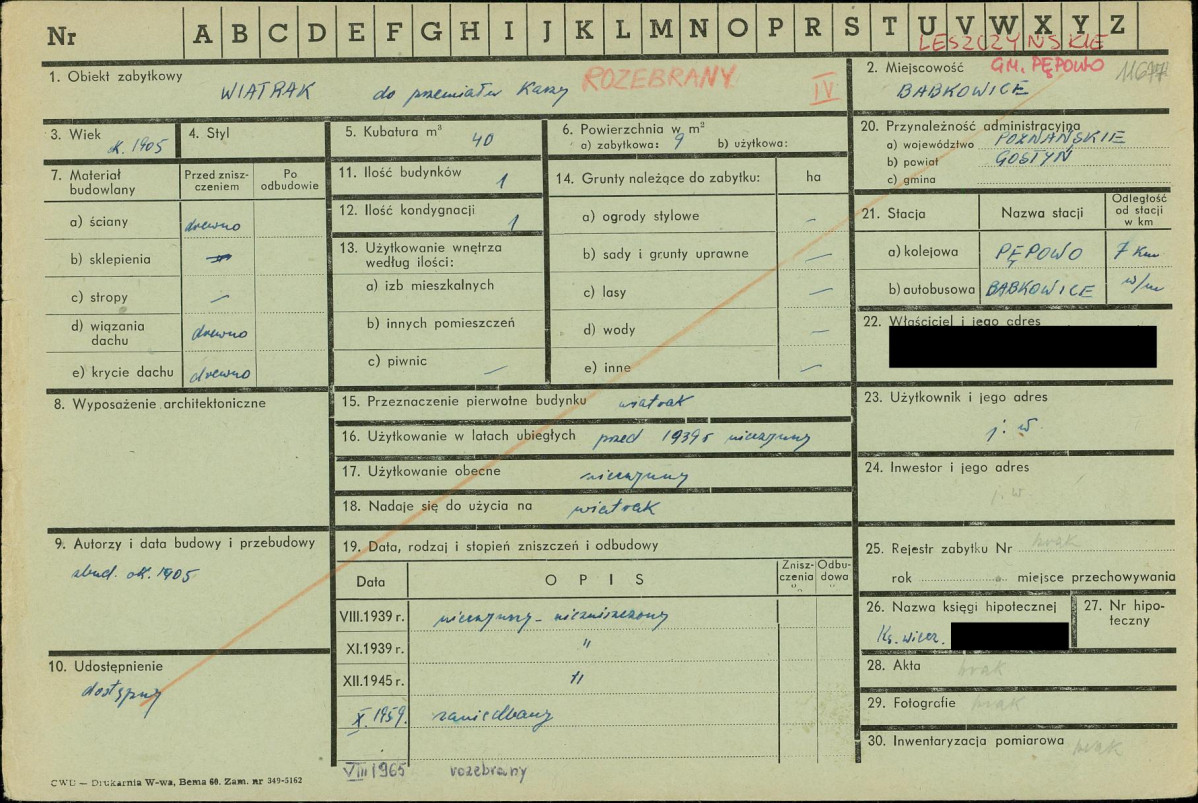 Nr A B C D E F G H I J K L M N O P R S T U V W X Y Z
LESZCZYŃSKIE
GM. PĘPOWO
11677
1. Obiekt zabytkowy
WIATRAK do przemiału Kaszy ROZEBRANY IV
2. Miejscowość
BABKOWICE
3. Wiek
ok. 1905
4. Styl
5. Kubatura m³ 40
6. Powierzchnia w m²
a) zabytkowa: 9 b) użytkowa:
20. Przynależność administracyjna
a) województwo POZNAŃSKIE
b) powiat GOSTYŃ
c) gmina
7. Materiał budowlany
Przed zniszczeniem
Po odbudowie
a) ściany drewno
b) sklepienia
c) stropy —
d) wiązania dachu drewno
e) krycie dachu drewno
11. Ilość budynków 1
12. Ilość kondygnacji 1
13. Użytkowanie wnętrza
według ilości:
a) izb mieszkalnych
b) innych pomieszczeń
c) piwnic —
14. Grunty należące do zabytku: ha
a) ogrody stylowe —
b) sady i grunty uprawne —
c) lasy —
d) wody —
e) inne —
21. Stacja Nazwa stacji Odległość od stacji w km
a) kolejowa PĘPOWO 7 Km
b) autobusowa BABKOWICE w/m
22. Właściciel i jego adres
8. Wyposażenie architektoniczne
15. Przeznaczenie pierwotne budynku wiatrak
16. Użytkowanie w latach ubiegłych przed 1939 r nieczynny
17. Użytkowanie obecne nieczynny
18. Nadaje się do użycia na wiatrak
23. Użytkownik i jego adres
j. w.
24. Inwestor i jego adres
j. w.
9. Autorzy i data budowy i przebudowy
zbud. ok. 1905
19. Data, rodzaj i stopień zniszczeń i odbudowy
Data OPIS Zniszczenia % Odbudowa %
VIII.1939 r. nieczynny – niezniszczony
XI.1939 r. "
XII.1945 r. "
X. 1959. zaniedbany
VIII 1965 rozebrany
25. Rejestr zabytku Nr brak
rok miejsce przechowywania
26. Nazwa księgi hipotecznej
Ks. wiecz.
27. Nr hipoteczny
10. Udostępnienie
dostępny
28. Akta brak
29. Fotografie brak
30. Inwentaryzacja pomiarowa brak
CWD — Drukarnia W-wa, Bema 60. Zam. nr 349-5162